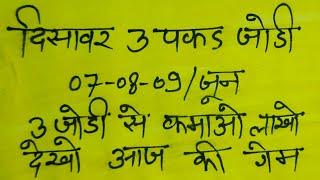 दिसावर 3 पकड जोडी
07-08-09/जून
3 जोडी से कमाओ लाखो
देखो आज की गेम